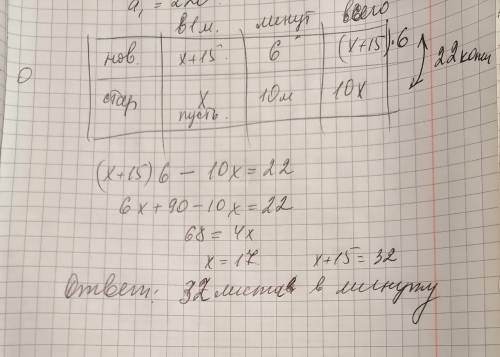 в 1 м. минут всего
нов. x+15. 6 (x+15)·6
стар x 10м 10x 22 копии
пусть.
(x+15)6 - 10x = 22
6x+90-10x=22
68=4x
x=17 x+15=32
Ответ: 32 листав в минуту